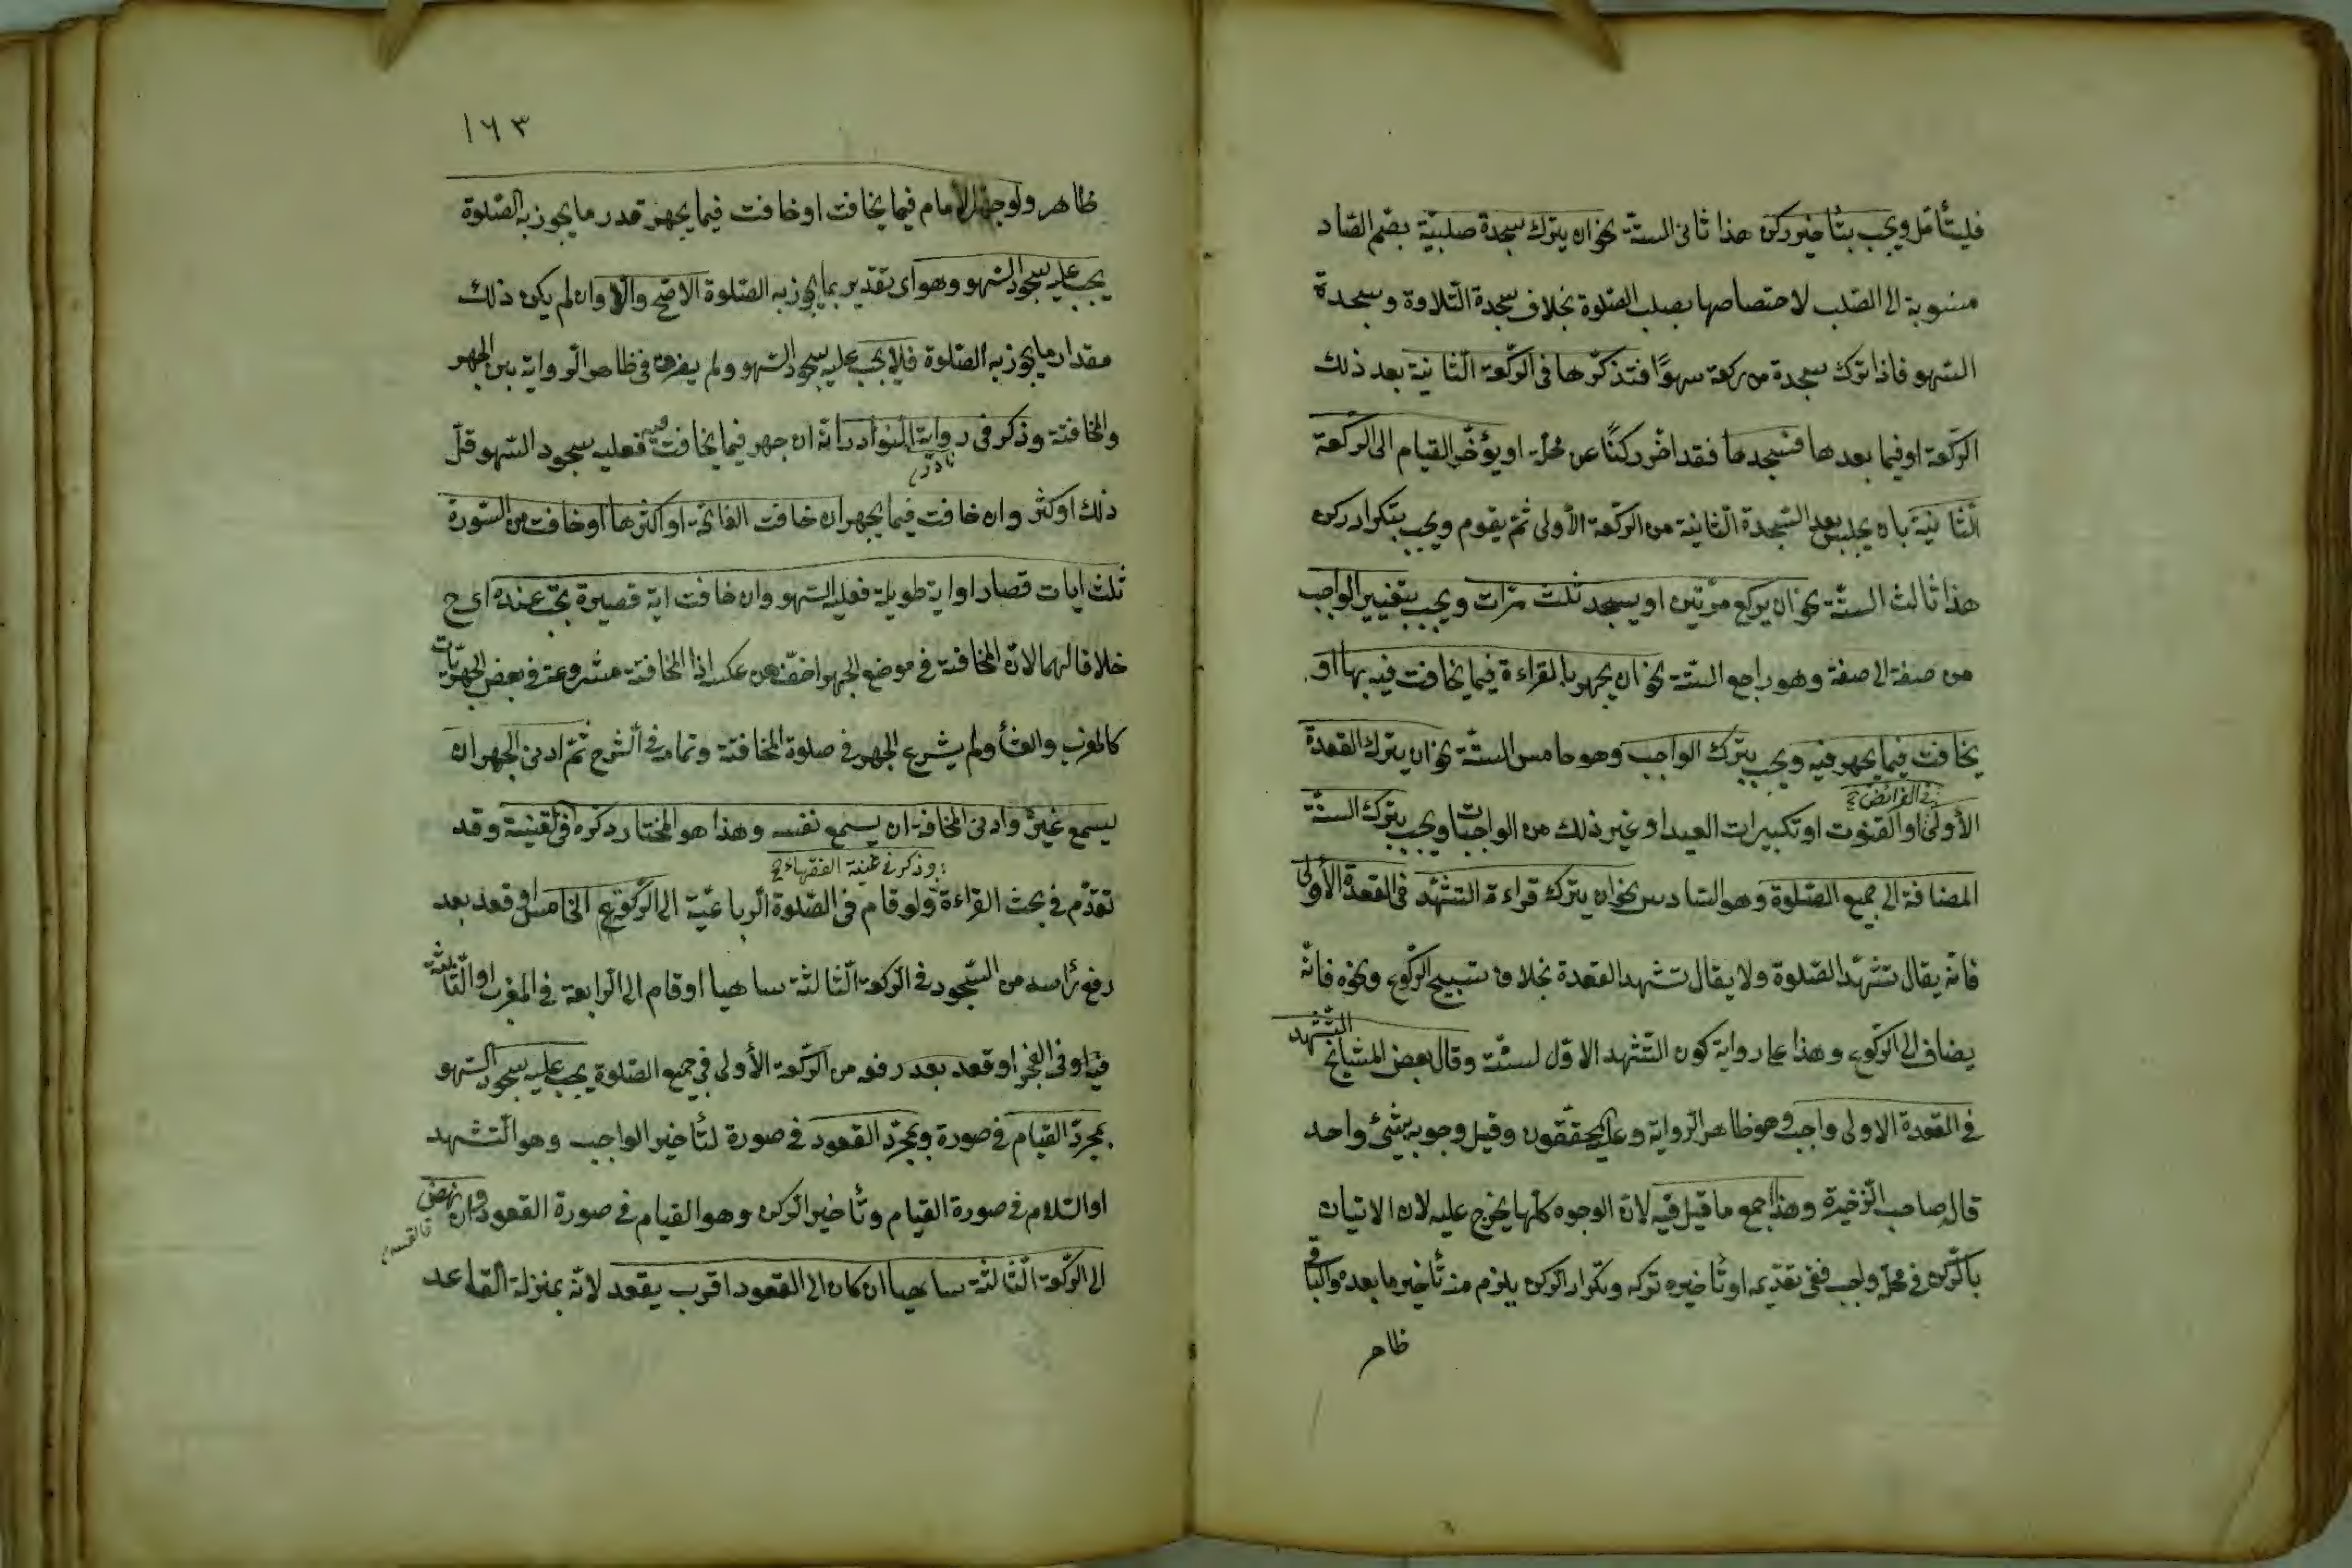 فليتأمل ويجب بتأخير ركن هذا ثانى الستة نحو ان يترك سجدة صلبيّة بضم الصّاد
منسوبة الى الصّلب لاختصاصها بصلب الصّلوة بخلاف سجدة التّلاوة وسجدة
السّهو فاذا ترك سجدة من ركعة سهوًا فتذكّرها فى الرّكعة الثّانية بعد ذلك
الرّكعة او فيما بعدها فسجدها فقد اخّر ركنًا عن محلّه او يؤخّر القيام الى الركعة
الثّانية بان يجلس بعد السّجدة الثّانية من الرّكعة الأولى ثمّ يقوم ويجب بتكرار ركن
هذا ثالث الستّة نحو ان يركع مرّتين او يسجد ثلث مرّات ويجب بتغيير الواجب
من صفة الى صفة وهو رابع الستّة نحو ان يجهر بالقراءة فيما يخافت فيه بها او
يخافت فيما يجهر فيه ويجب بترك الواجب وهو خامس الستّة نحو ان يترك القعدة
فى الفرائض
الأولى او القنوت او تكبيرات العيد او غير ذلك من الواجبات ويجب بترك السنّة
المضافة الى جميع الصّلوة وهو السّادس نحو ان يترك قراءة التشهّد فى القعدة الأولى
فانّه يقال تشهّد الصّلوة ولا يقال تشهد القعدة بخلاف تسبيح الركوع ونحوه فانّه
يضاف الى الرّكوع وهذا على رواية كون التّشهد الاوّل لسنّة وقال بعض المشايخ التّشهد
فى القعدة الاولى واجب وهو ظاهر الرّواية وعليه المحقّقون وقيل وجوبه بشئ واحد
قاله صاحب الذّخيرة وهذا اجمع ما قيل فيه لانّ الوجوه كلّها يخرج عليه لان الاتيان
بالرّكن فى محلّه واجب ففى تقدّيمه او تأخيره تركه وتكرار الركن يلزم منه تأخير ما بعده والباقى
ظاهر
١٦٣
ظاهر ولو جهر الأمام فيما يخافت او خافت فيما يجهر قدر ما يجوز به الصّلوة
يجب عليه سجود السّهو وهو اى تقدير بما يجوز به الصّلوة الاصّح والّا وان لم يكن ذلك
مقدار ما يجوز به الصّلوة فلا يجب عليه سجود السّهو ولم يفرق فى ظاهر الرواية بين الجهر
والمخافتة وذكر فى رواية النوادر انّه ان جهر فيما يخافت فيه فعليه سجود السّهو قلّ
ذلك او كثر وان خافت فيما يجهر ان خافت الفاتحة او اكثرها او خافت من السّورة
ثلث ايات قصار او اية طويلة فعليه السّهو وان خافت اية قصيرة يجب عنده اى ح
خلافا لهما لانّ المخافتة فى موضع الجهر اخفّ من عكسه اذا المخافتة مشروعة فى بعض الجهريّات
كالمغرب والعشأ ولم يشرع الجهر فى صلوة المخافتة وتمامه فى الشرح ثمّ ادنى الجهر ان
يسمع غيره وادنى المخافتة ان يسمع نفسه وهذا هو المختار ذكره فى القنية وقد
وذكر فى غنية الفقهاء
تقدّم فى بحث القراءة ولو قام فى الصّلوة الرّباعيّة الى الرّكعة الخامس او قعد بعد
رفع رأسه من السّجود فى الرّكعة الثّالثة ساهيا او قام الى الرّابعة فى المغرب او الثّالثة
فيها او فى الفجر او قعد بعد رفعه من الرّكعة الأولى فى جميع الصّلوة يجب عليه سجود السّهو
بمجرّد القيام فى صورة وبمجرّد القعود فى صورة لتأخير الواجب وهو التّشهد
او السّلام فى صورة القيام وتأخير الركن وهو القيام فى صورة القعود وان نهض
الى الرّكعة الثّالثة ساهيا ان كان الى القعود اقرب يقعد لانّه بمنزلة القاعد